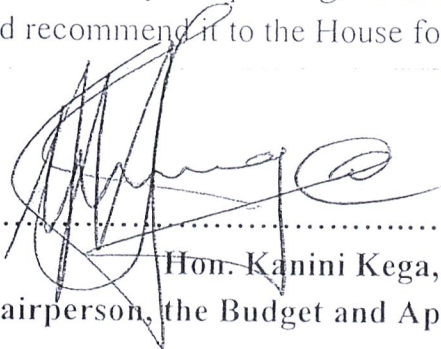 d recommend it to the House fo
Hon. Kanini Kega,
airperson, the Budget and Ap